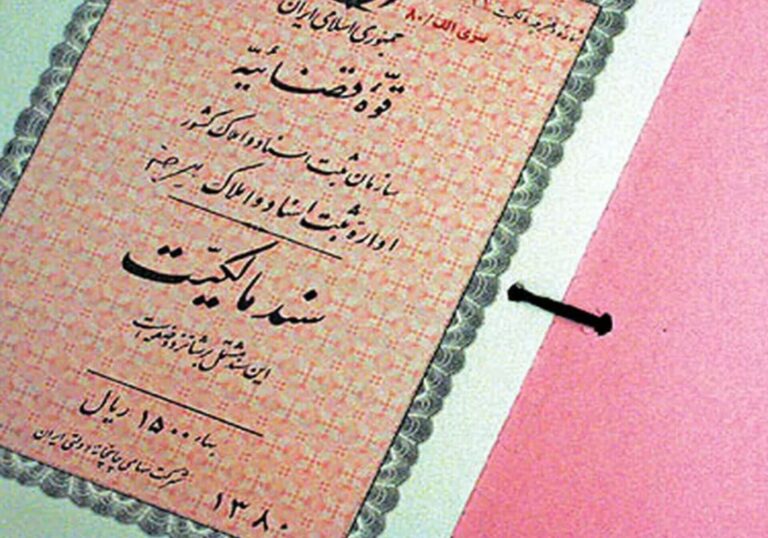 جمهوری اسلامی ایران
سری الف/۸۰
قوّهٔ قضائیّه
سازمان ثبت اسناد و املاک کشور
ادارهٔ ثبت اسناد و املاک
سند مالکیّت
این سند مشتمل بر شانزده صفحه است
بهاء ۱۵۰۰ ریال
شرکت سهامی چاپخانه دولتی ایران
۱۳۸۰